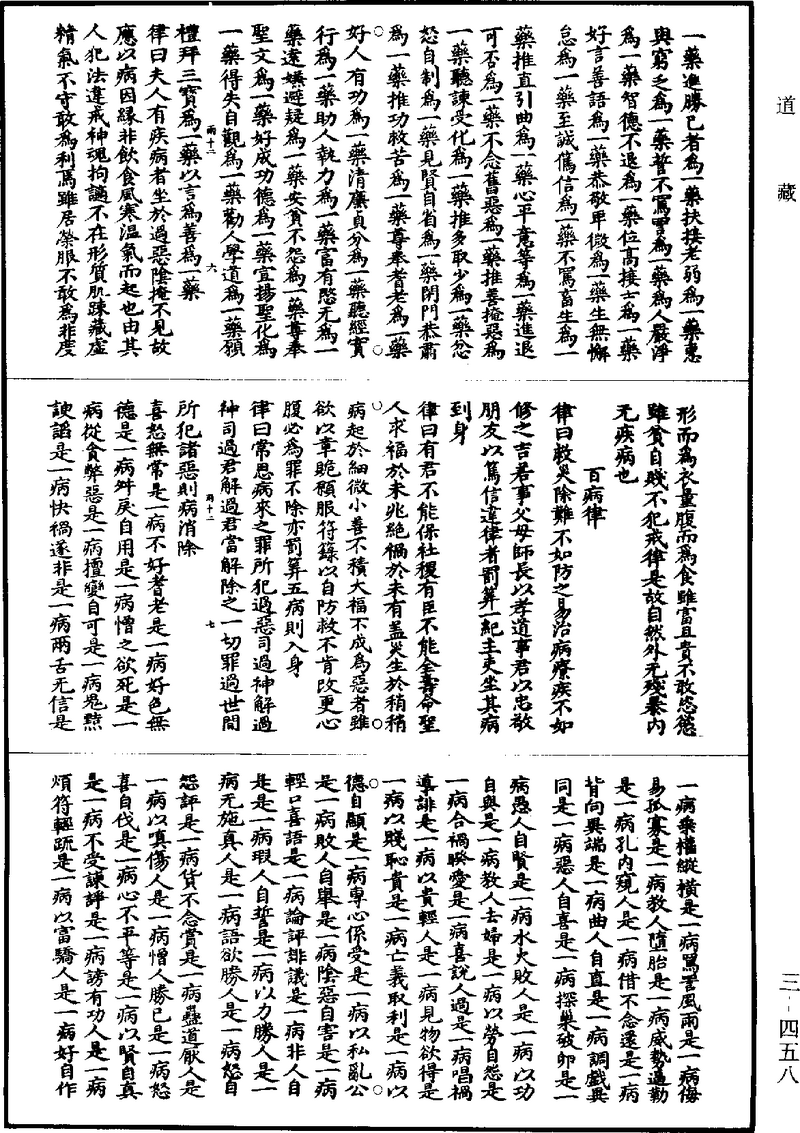 道藏
一藥進勝己者為一藥扶接老弱為一藥惠
與窮乏為一藥誓不罵詈為一藥為人嚴淨
為一藥智德不退為一藥位高接士為一藥
好言善語為一藥恭敬卑微為一藥生無懈
怠為一藥至誠篤信為一藥不罵畜生為一
藥推直引曲為一藥心平意等為一藥進退
可否為一藥不念舊惡為一藥推善掩惡為
一藥聽諫受化為一藥推多取少為一藥忿
怒自制為一藥見賢自省為一藥閉門恭肅
為一藥推功救苦為一藥尊奉耆老為一藥
好人有功為一藥清廉貞分為一藥聽經實
行為一藥助人執力為一藥富有愍无為一
藥遠嫌避疑為一藥安貧不怨為一藥尊奉
聖文為一藥好成功德為一藥宣揚聖化為
一藥得失自觀為一藥勸人學道為一藥願
六
禮拜三寶為一藥以言為善為一藥
律曰夫人有疾病者坐於過惡陰掩不見故
應以病因緣非飲食風寒溫氣而起也由其
人犯法違戒神魂拘謫不在形質肌踈藏虛
精氣不守敢為利焉雖居榮服不敢為非度
形而為衣量腹而為食雖富且貴不敢恣慾
雖貧自賤不犯戒律是故自然外无殘暴內
无疾病也
百病律
律曰救災除難不如防之易治病療疾不如
修之吉君事父母師長以孝道事君以忠敬
朋友以篤信違律者罰筭一紀主吏坐其病
到身
律曰有君不能保社稷有臣不能全壽命聖
人求福於未兆絕禍於未有盖災生於稍稍
病起於細微小善不積大福不成為惡者雖
欲以章詭願服符籙以自防救不肯改更心
腹必為罪不除亦罰筭五病則入身
律曰常思病來之罪所犯過惡司過神解過
神司過君解過君當解除之一切罪過世間
七
所犯諸惡則病消除
喜怒無常是一病不好耆老是一病好色無
德是一病舛戾自用是一病憎之欲死是一
病從貪弊惡是一病擅變自可是一病鬼黠
諛謟是一病快禍遂非是一病兩舌无信是
一病乘權縱橫是一病罵詈風雨是一病侮
易孤寡是一病教人墮胎是一病威勢逼勒
是一病孔內窺人是一病借不念還是一病
背向異端是一病曲人自直是一病調戲典
同是一病惡人自喜是一病探巢破卵是一
病愚人自賢是一病水火敗人是一病以功
自與是一病教人去婦是一病以勞自怨是
一病合禍睽愛是一病喜說人過是一病唱禍
導誹是一病以貴輕人是一病見物欲得是
一病以賤恥貴是一病亡義取利是一病以
德自顯是一病專心係受是一病以私亂公
是一病敗人自舉是一病陰惡自害是一病
輕口喜語是一病論評誹議是一病非人自
是是一病瑕人自誓是一病以力勝人是一
病无施真人是一病語欲勝人是一病怒自
怨評是一病貨不念賞是一病蠱道厭人是
一病以嗔傷人是一病憎人勝已是一病怒
喜自伐是一病心不平等是一病以賢自真
是一病不受諫諍是一病謗有功人是一病
煩符輕疏是一病以富驕人是一病好自作
三-四五八